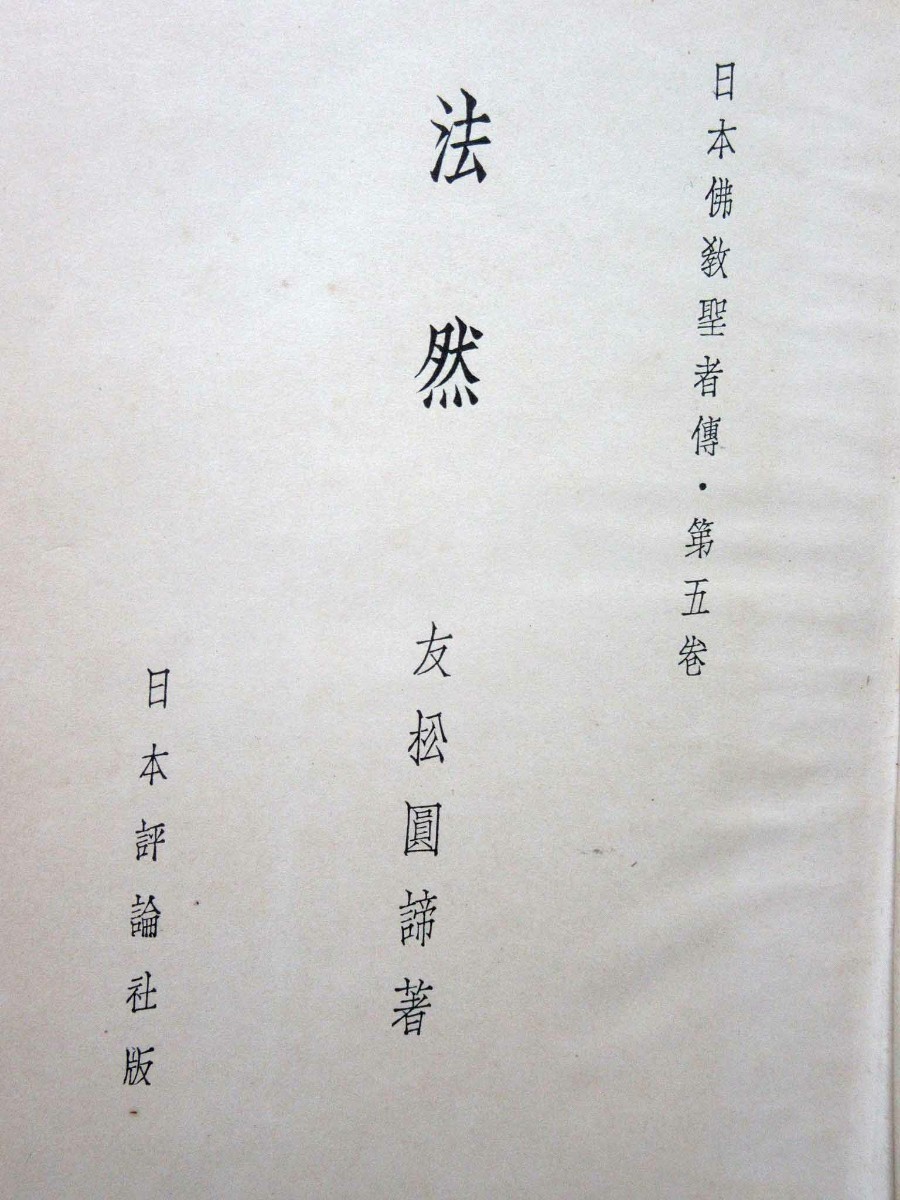 日本佛敎聖者傳・第五卷
法然
友松圓諦著
日本評論社版